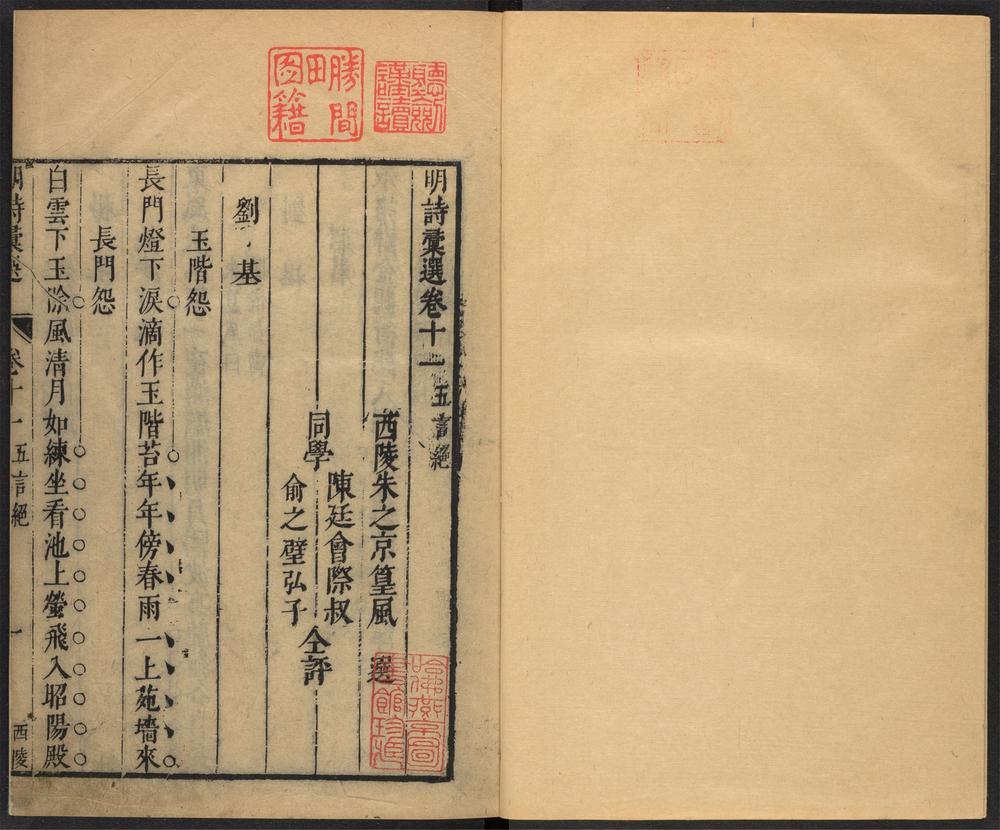 明詩彙選卷十一 五言絕
西陵朱之京篁風 選
同學 陳廷會際叔
俞之璧弘子 仝評
劉基
玉階怨
長門燈下淚滴作玉階苔年年傍春雨一上苑墻來
長門怨
白雲下玉除風清月如練坐看池上螢飛入昭陽殿
明詩彙選 卷十一 五言絕 一 西陵
勝間田圖籍
聽劍謹讀
哈佛燕京圖書館珍藏